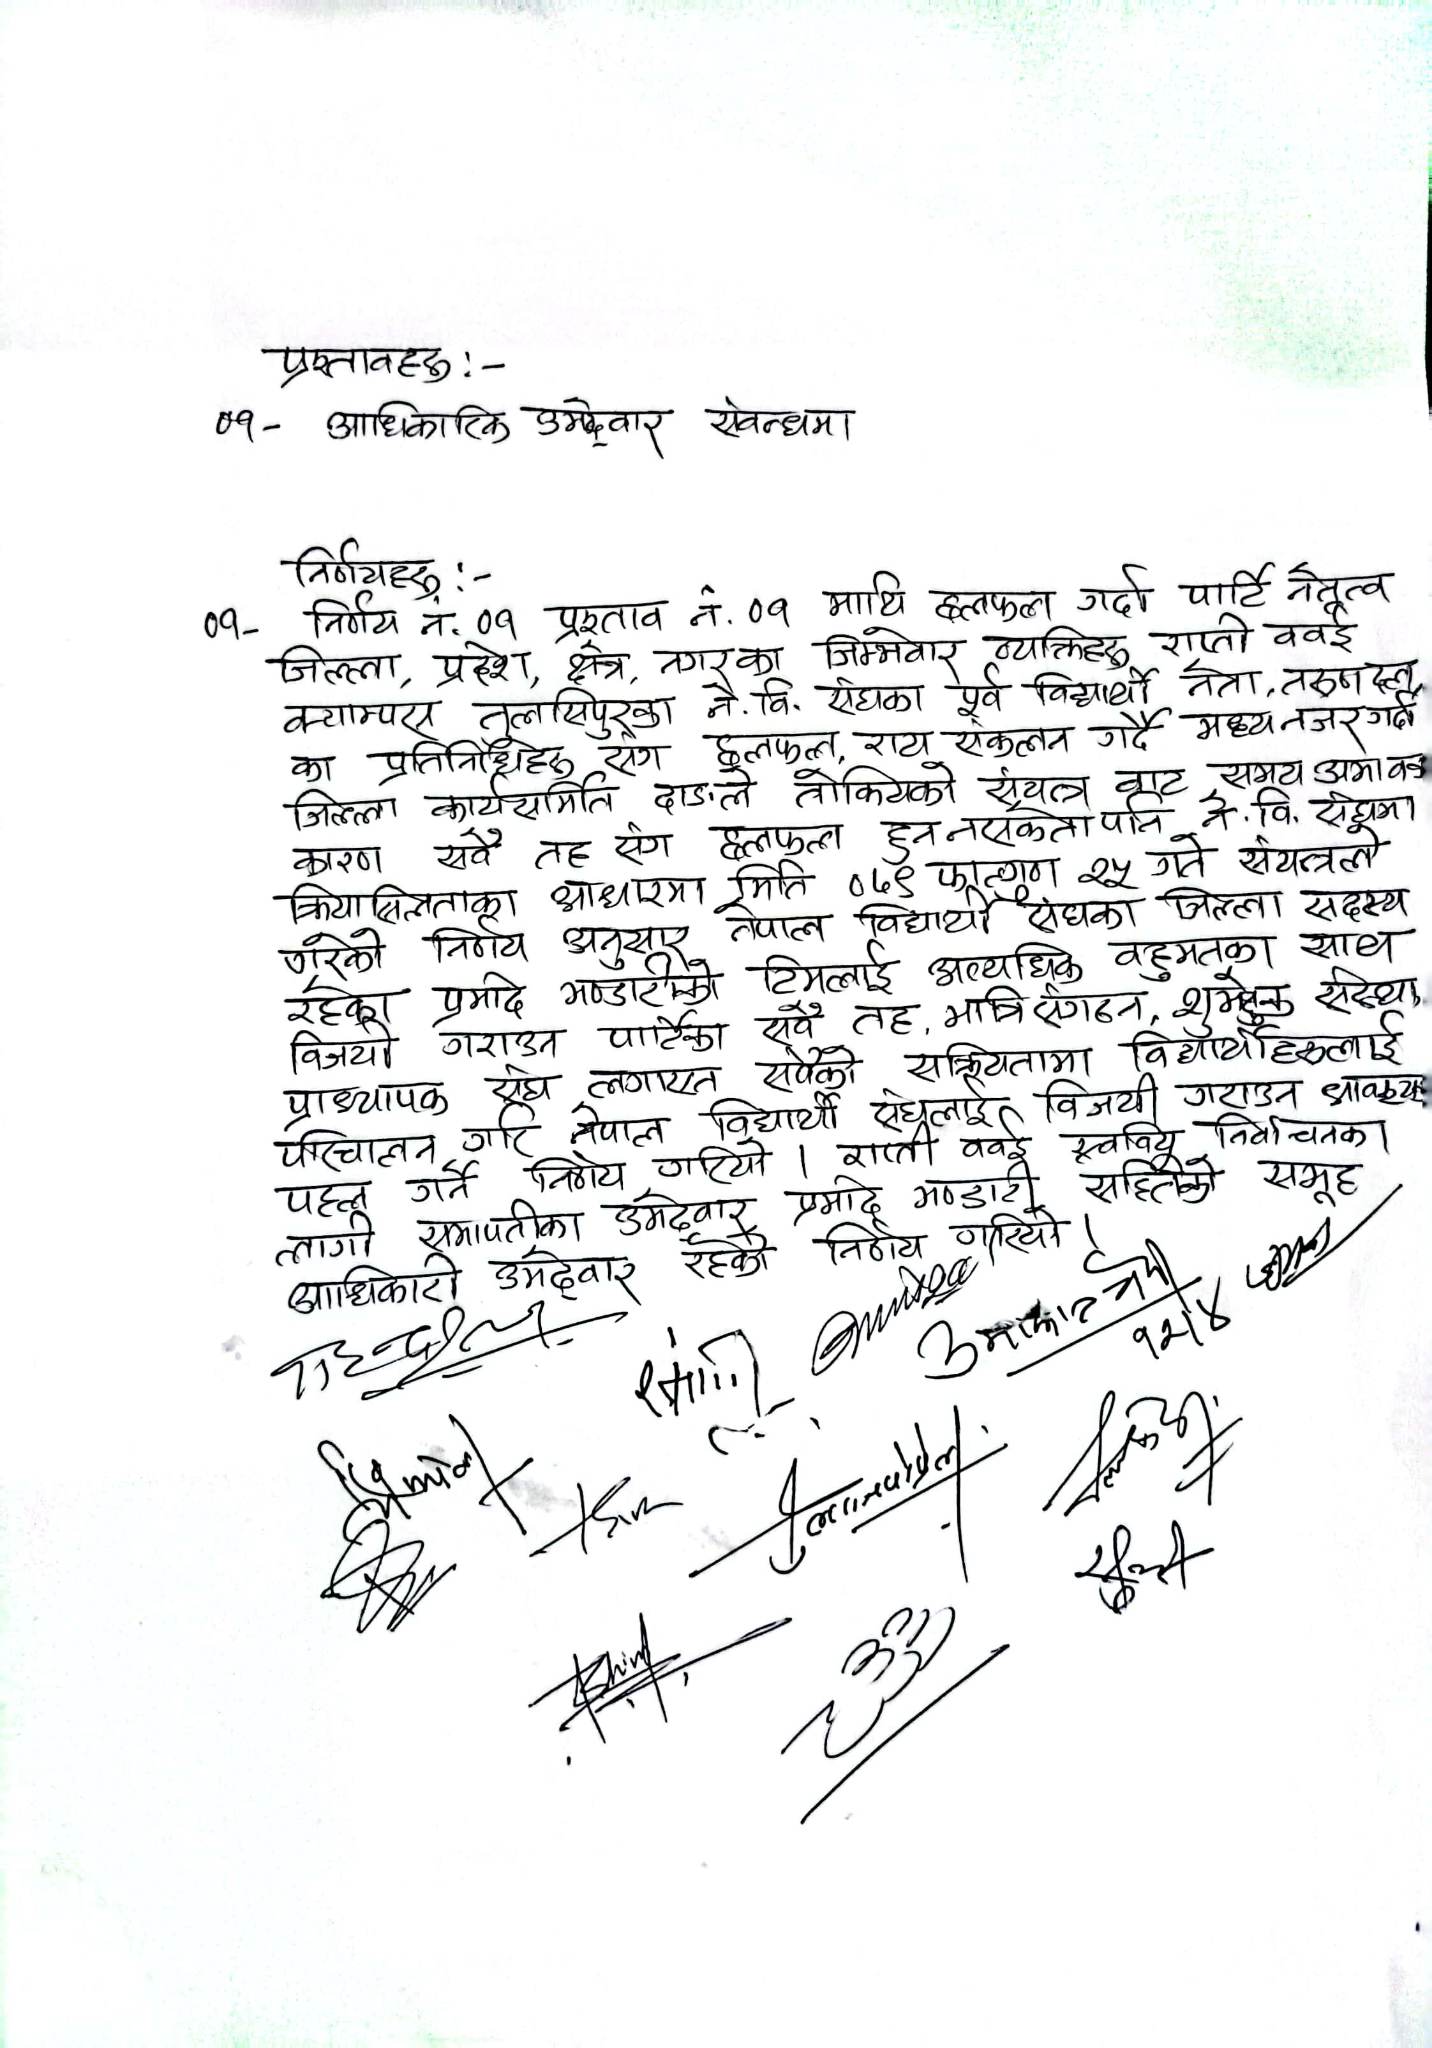 प्रस्तावहरु :-
०१- आधिकारिक उमेद्वार संवन्धमा
निर्णयहरु :-
०१- निर्णय नं. ०१ प्रस्ताव नं. ०१ माथि छलफल गर्दा पार्टि नेतृत्व
जिल्ला, प्रदेश, क्षेत्र, नगरका जिम्मेवार व्यक्तिहरु राप्ती ववई
क्याम्पस तुलसिपुरका ने. वि. संघका पूर्व विद्यार्थी नेता, तरुण दल
का प्रतिनिधिहरु संग छलफल, राय संकलन गर्दै मध्यनजर गर्दा
जिल्ला कार्यसमिति दाङले तोकियको संयन्त्र वाट समय अभावका
कारण सवै तह संग छलफल हुन नसकेता पनि ने. वि. संघमा
क्रियासिलताका आधारमा मिति ०७९ फाल्गुण २५ गते संयन्त्रले
गरेको निर्णय अनुसार नेपाल विद्यार्थी संघका जिल्ला सदस्य
रहेका प्रमोद भण्डारीको टिमलाई अत्यधिक वहुमतका साथ
विजयी गराउन पार्टिका सवै तह, भात्रि संगठन, शुभेच्छुक संस्था,
प्राध्यापक संघ लगायत सवैको सक्रियतामा विद्यार्थीहरुलाई
परिचालन गरि नेपाल विद्यार्थी संघलाई विजयी गराउन आवश्यक
पहल गर्ने निर्णय गरियो । राप्ती ववई स्ववियु निर्वाचनका
लागी सभापतीका उमेद्वार प्रमोद भण्डारी सहितको समूह
आधिकारी उमेद्वार रहेको निर्णय गरियो ।